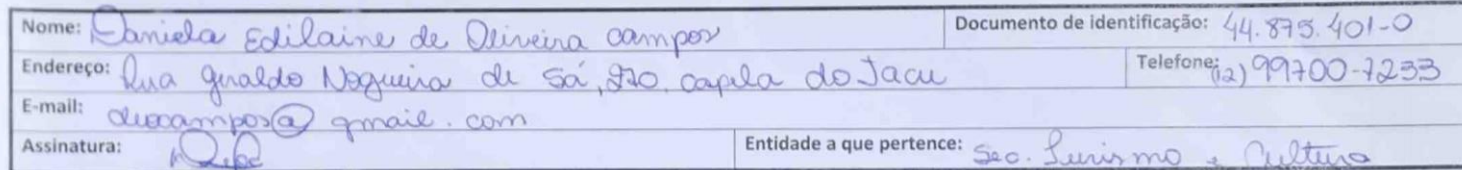 Nome: Daniela Edilaine de Oliveira campos Documento de identificação: 44.875.401-0
Endereço: Rua Geraldo Nogueira de Sá, 270. capela do Jacu Telefone: (12) 99700-7233
E-mail: deocampos@gmail.com
Assinatura: Entidade a que pertence: Sec. Turismo e Cultura